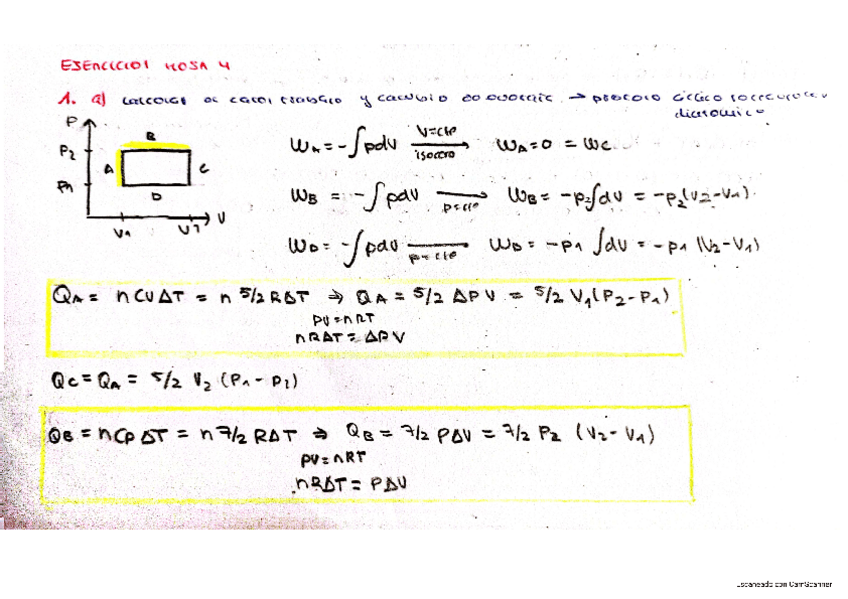 EJERCICIOS HOJA 4
1. a) calcular el calor, trabajo y cambio de energía → proceso cíclico
diatómico
P
P2
P1
A
B
C
D
V1
V2
V
WA = -∫pdV V=cte isocoro → WA = 0 = WC
WB = -∫pdV p=cte → WB = -p2∫dV = -p2(V2-V1).
WD = -∫pdV p=cte → WD = -p1 ∫dV = -p1 (V2-V1)
QA = nCV ΔT = n 5/2 RΔT ⇒ QA = 5/2 ΔPV = 5/2 V1(P2-P1)
PV=nRT
nRΔT = ΔPV
QC = QA = 5/2 V2 (P1-P2)
QB = nCp ΔT = n 7/2 RΔT ⇒ QB = 7/2 PΔV = 7/2 P2 (V2-V1)
PV=nRT
nRΔT = PΔV
Escaneado con CamScanner